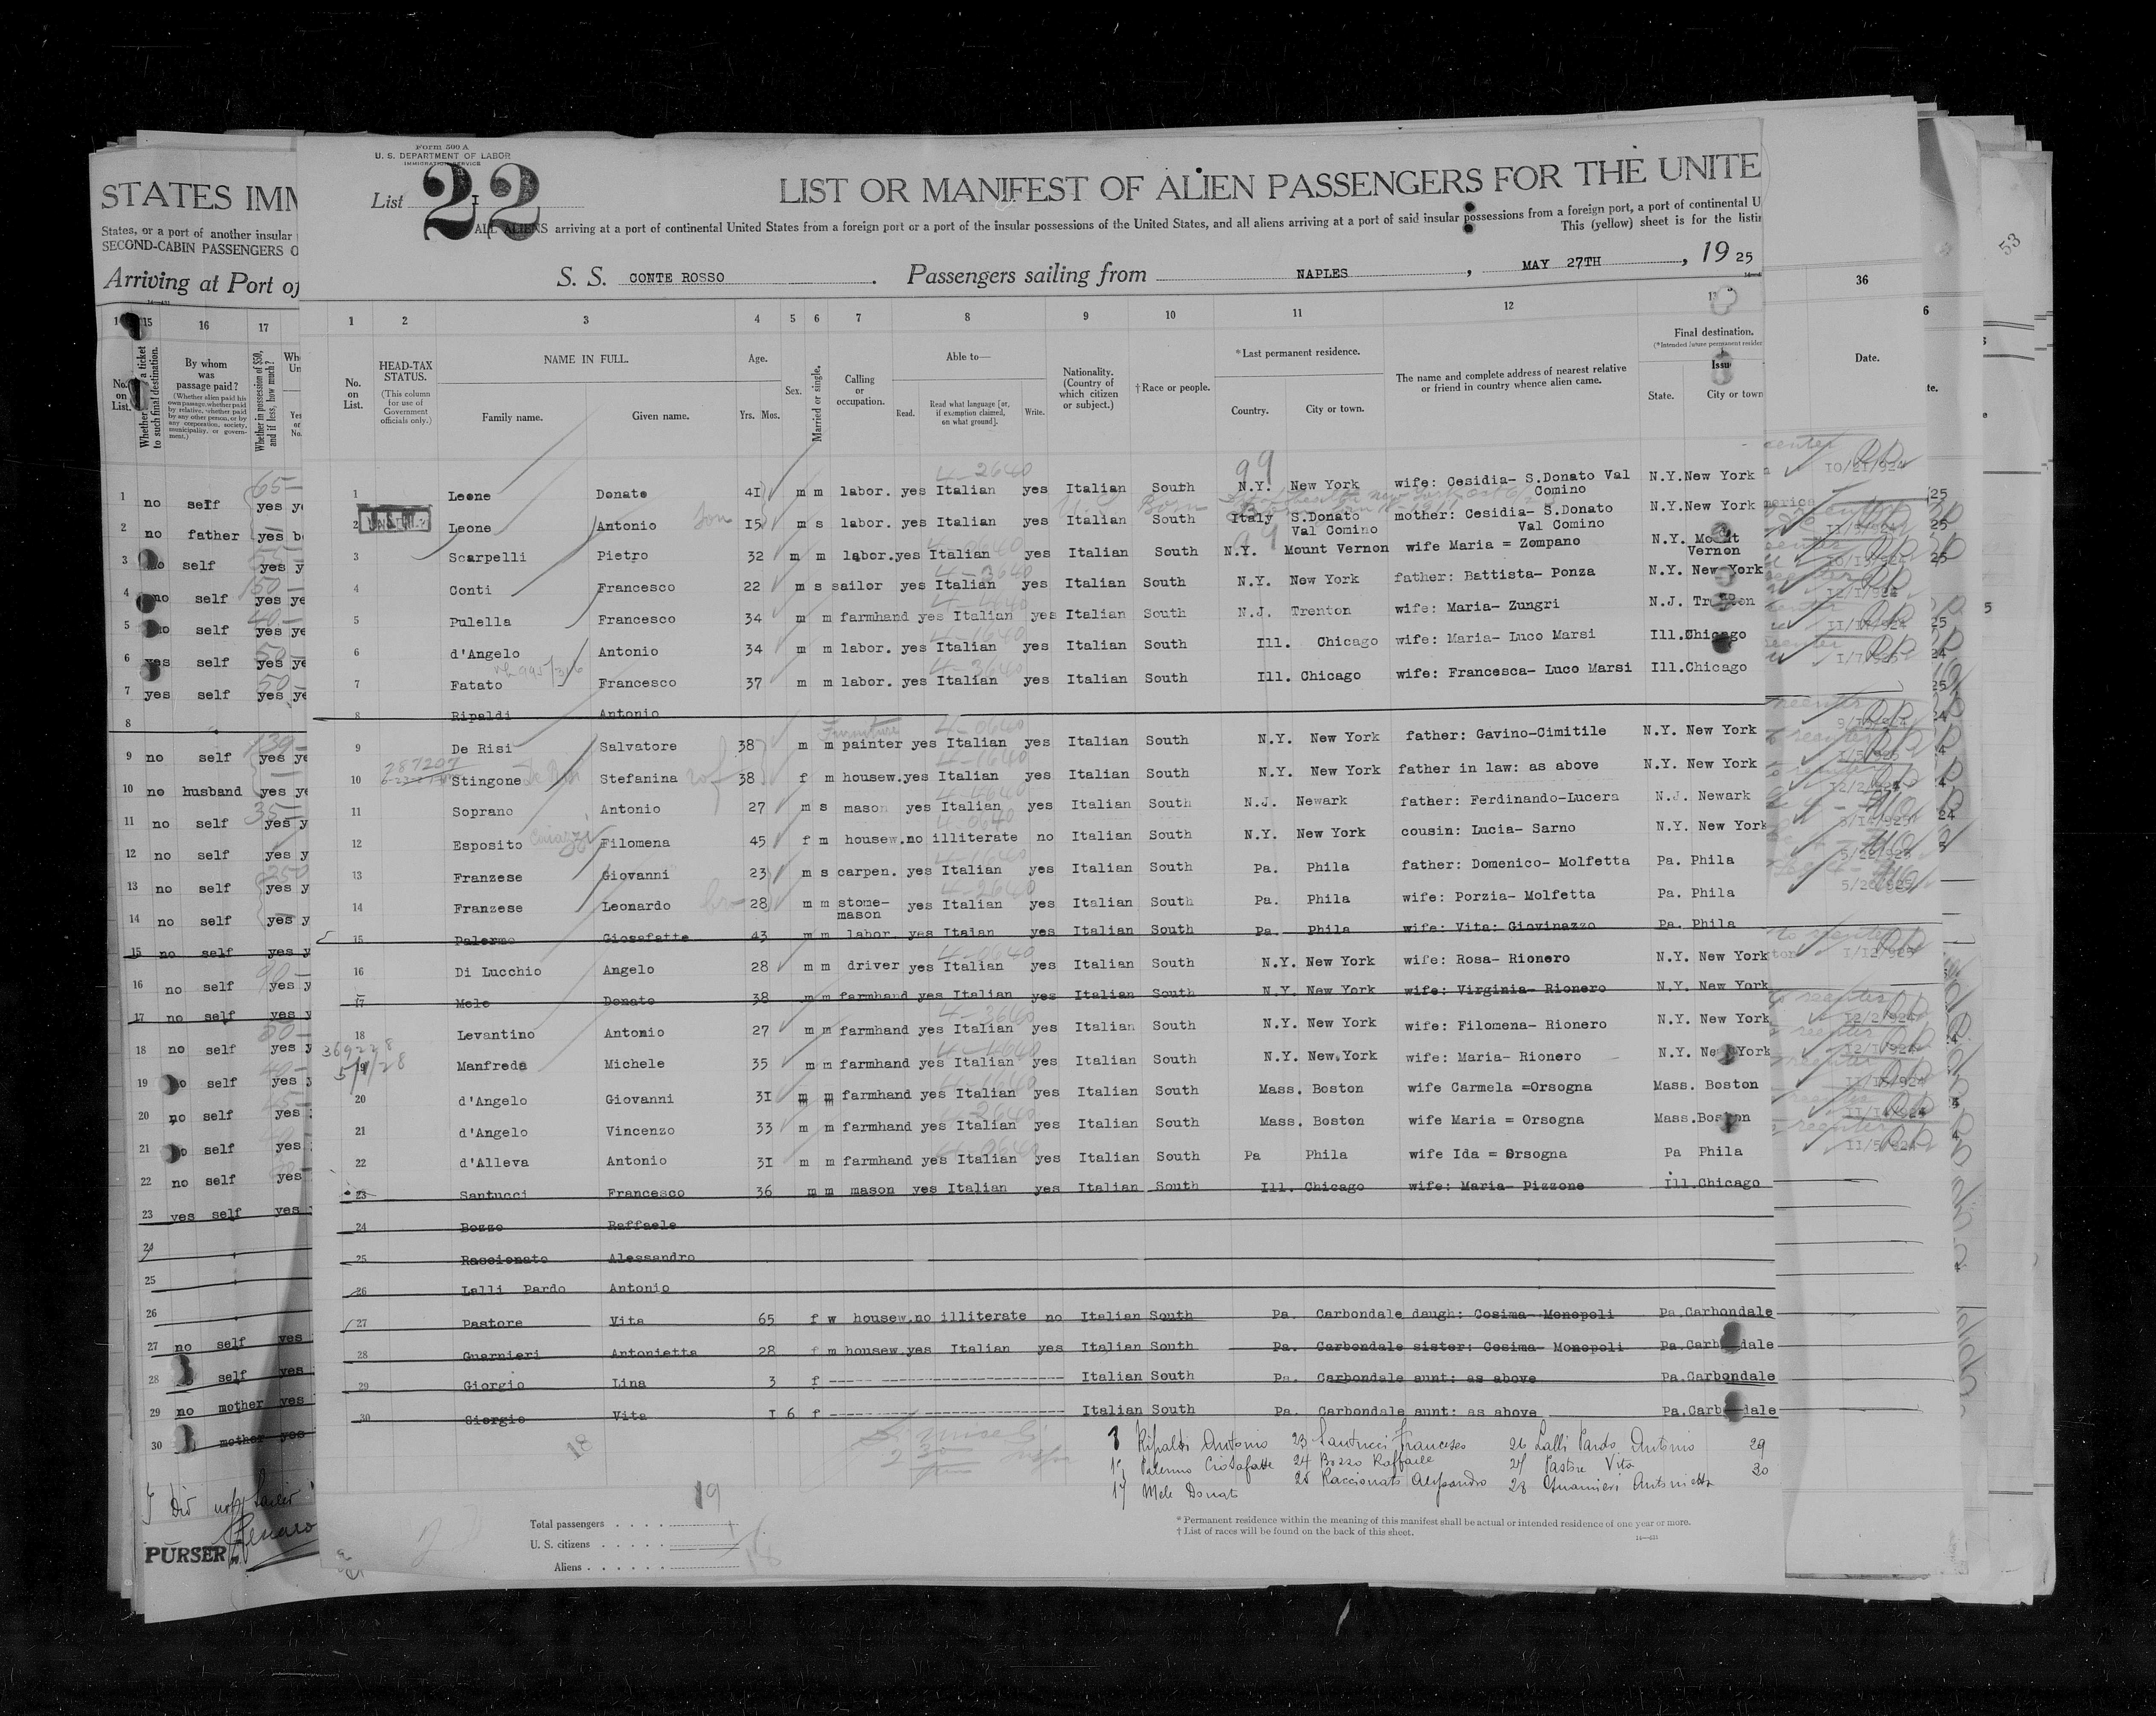 Form 500 A
U. S. DEPARTMENT OF LABOR
IMMIGRATION SERVICE
List 22
LIST OR MANIFEST OF ALIEN PASSENGERS FOR THE UNITE
ALL ALIENS arriving at a port of continental United States from a foreign port or a port of the insular possessions of the United States, and all aliens arriving at a port of said insular possessions from a foreign port, a port of continental U
This (yellow) sheet is for the listin
S. S. CONTE ROSSO. Passengers sailing from NAPLES, MAY 27TH, 19 25
1 2 3 4 5 6 7 8 9 10 11 12
No. on List.
HEAD-TAX STATUS.
(This column for use of Government officials only.)
NAME IN FULL.
Family name. Given name.
Age.
Yrs. Mos.
Sex.
Married or single.
Calling or occupation.
Able to—
Read. Read what language [or, if exemption claimed, on what ground]. Write.
Nationality. (Country of which citizen or subject.)
† Race or people.
*Last permanent residence.
Country. City or town.
The name and complete address of nearest relative or friend in country whence alien came.
Final destination.
(*Intended future permanent residen
State. City or town
1 Leone Donato 4I m m labor. yes Italian yes Italian South N.Y. New York wife: Cesidia- S.Donato Val Comino N.Y.New York
2 Leone Antonio son I5 m s labor. yes Italian yes Italian South Italy S.Donato Val Comino mother: Cesidia- S.Donato Val Comino N.Y.New York
3 Scarpelli Pietro 32 m m labor.yes Italian yes Italian South N.Y. Mount Vernon wife Maria = Zompano N.Y. Mount Vernon
4 Conti Francesco 22 m s sailor yes Italian yes Italian South N.Y. New York father: Battista- Ponza N.Y. New York
5 Pulella Francesco 34 m m farmhand yes Italian yes Italian South N.J. Trenton wife: Maria- Zungri N.J. Trenton
6 d'Angelo Antonio 34 m m labor. yes Italian yes Italian South Ill. Chicago wife: Maria- Luco Marsi Ill.Chicago
7 Fatato Francesco 37 m m labor. yes Italian yes Italian South Ill. Chicago wife: Francesca- Luco Marsi Ill.Chicago
8 Ripaldi Antonio
9 De Risi Salvatore 38 m m Furniture painter yes Italian yes Italian South N.Y. New York father: Gavino-Cimitile N.Y. New York
10 287207 Stingone Stefanina 38 f m housew.yes Italian yes Italian South N.Y. New York father in law: as above N.Y. New York
11 Soprano Antonio 27 m s mason yes Italian yes Italian South N.J. Newark father: Ferdinando-Lucera N.J. Newark
12 Esposito Filomena 45 f m housew.no illiterate no Italian South N.Y. New York cousin: Lucia- Sarno N.Y. New York
13 Franzese Giovanni 23 m s carpen. yes Italian yes Italian South Pa. Phila father: Domenico- Molfetta Pa. Phila
14 Franzese Leonardo bro 28 m m stome-mason yes Italian yes Italian South Pa. Phila wife: Porzia- Molfetta Pa. Phila
15 Palermo Giosafatte 43 m m labor yes Itaian yes Italian South Pa. Phila wife: Vita: Giovinazzo Pa. Phila
16 Di Lucchio Angelo 28 m m driver yes Italian yes Italian South N.Y. New York wife: Rosa- Rionero N.Y. New York
17 Mele Donato 38 m m farmhand yes Italian yes Italian South N.Y. New York wife: Virginia- Rionero N.Y. New York
18 Levantino Antonio 27 m m farmhand yes Italian yes Italian South N.Y. New York wife: Filomena- Rionero N.Y. New York
19 Manfreda Michele 35 m m farmhand yes Italian yes Italian South N.Y. New.York wife: Maria- Rionero N.Y. New York
20 d'Angelo Giovanni 3I m m farmhand yes Italian yes Italian South Mass. Boston wife Carmela =Orsogna Mass. Boston
21 d'Angelo Vincenzo 33 m m farmhand yes Italian yes Italian South Mass. Boston wife Maria = Orsogna Mass.Boston
22 d'Alleva Antonio 3I m m farmhand yes Italian yes Italian South Pa Phila wife Ida = Orsogna Pa Phila
23 Santucci Francesco 36 m m mason yes Italian yes Italian South Ill. Chicago wife: Maria- Pizzone Ill.Chicago
24 Bozzo Raffaele
25 Raccionato Alessandro
26 Lalli Pardo Antonio
27 Pastore Vita 65 f w housew.no illiterate no Italian South Pa. Carbondale daugh: Cosima- Monopoli Pa.Carbondale
28 Guarnieri Antonietta 28 f m housew.yes Italian yes Italian South Pa. Carbondale sister: Cosima- Monopoli Pa.Carbondale
29 Giorgio Lina 3 f Italian South Pa. Carbondale aunt: as above Pa.Carbondale
30 Giorgio Vita I 6 f Italian South Pa. Carbondale aunt: as above Pa.Carbondale
8 Ripaldi Antonio 23 Santucci Francesco 26 Lalli Pardo Antonio 29
15 Palermo Giosafatte 24 Bozzo Raffaele 27 Pastore Vita 30
17 Mele Donato 25 Raccionato Alessandro 28 Guarnieri Antonietta
Total passengers
U. S. citizens
Aliens
* Permanent residence within the meaning of this manifest shall be actual or intended residence of one year or more.
† List of races will be found on the back of this sheet.
STATES IMM
States, or a port of another insular
SECOND-CABIN PASSENGERS O
Arriving at Port of
15 16 17
By whom was passage paid?
(Whether alien paid his own passage, whether paid by relative, whether paid by any other person, or by any corporation, society, municipality, or government.)
Whether in possession of $50, and if less, how much?
1 no self yes
2 no father yes
3 no self yes
4 no self yes
5 no self yes
6 yes self yes
7 yes self yes
8
9 no self yes
10 no husband yes
11 no self yes
12 no self yes
13 no self yes
14 no self yes
15 no self yes
16 no self yes
17 no self yes
18 no self yes
19 no self yes
20 no self yes
21 no self yes
22 no self yes
23 yes self yes
24
25
26
27 no self yes
28 self yes
29 no mother yes
30 mother yes
Did not sail
PURSER
36
Date.
53